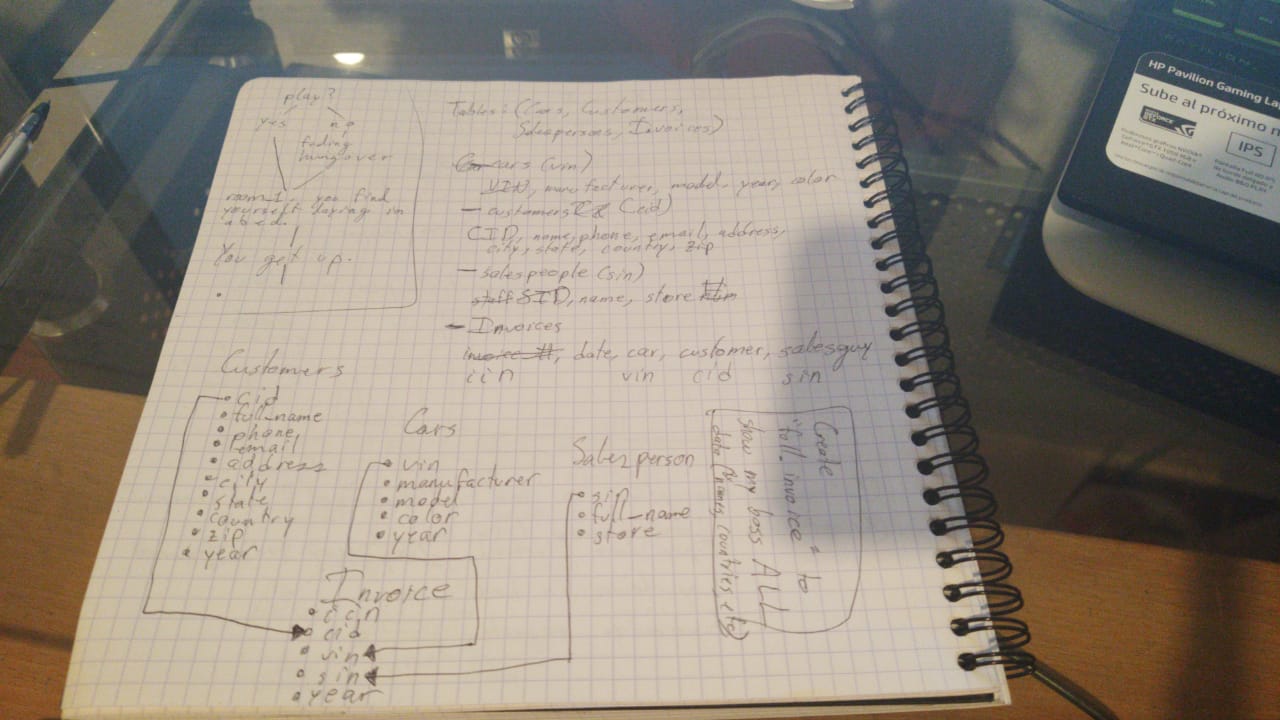 play?
yes no
fading
hungover
room 1, you find
yourself laying in
a bed.
You get up.
Tables: (Cars, Customers,
Salespersons, Invoices)
cars (vin)
VIN, manufacturer, model, year, color
- customers (cid)
CID, name, phone, email, address,
city, state, country, zip
- salespeople (sin)
staff SID, name, store
- Invoices
invoice #, date, car, customer, salesguy
iin vin cid sin
Customers
cid
full_name
phone
email
address
city
state
country
zip
year
Cars
vin
manufacturer
model
color
year
Salesperson
sin
full_name
store
Invoice
cid
vin
sin
year
Create
"full invoice" to
show my boss ALL
data (names, countries etc)
HP Pavilion Gaming
Sube al próximo
GEFORCE
GTX
IPS